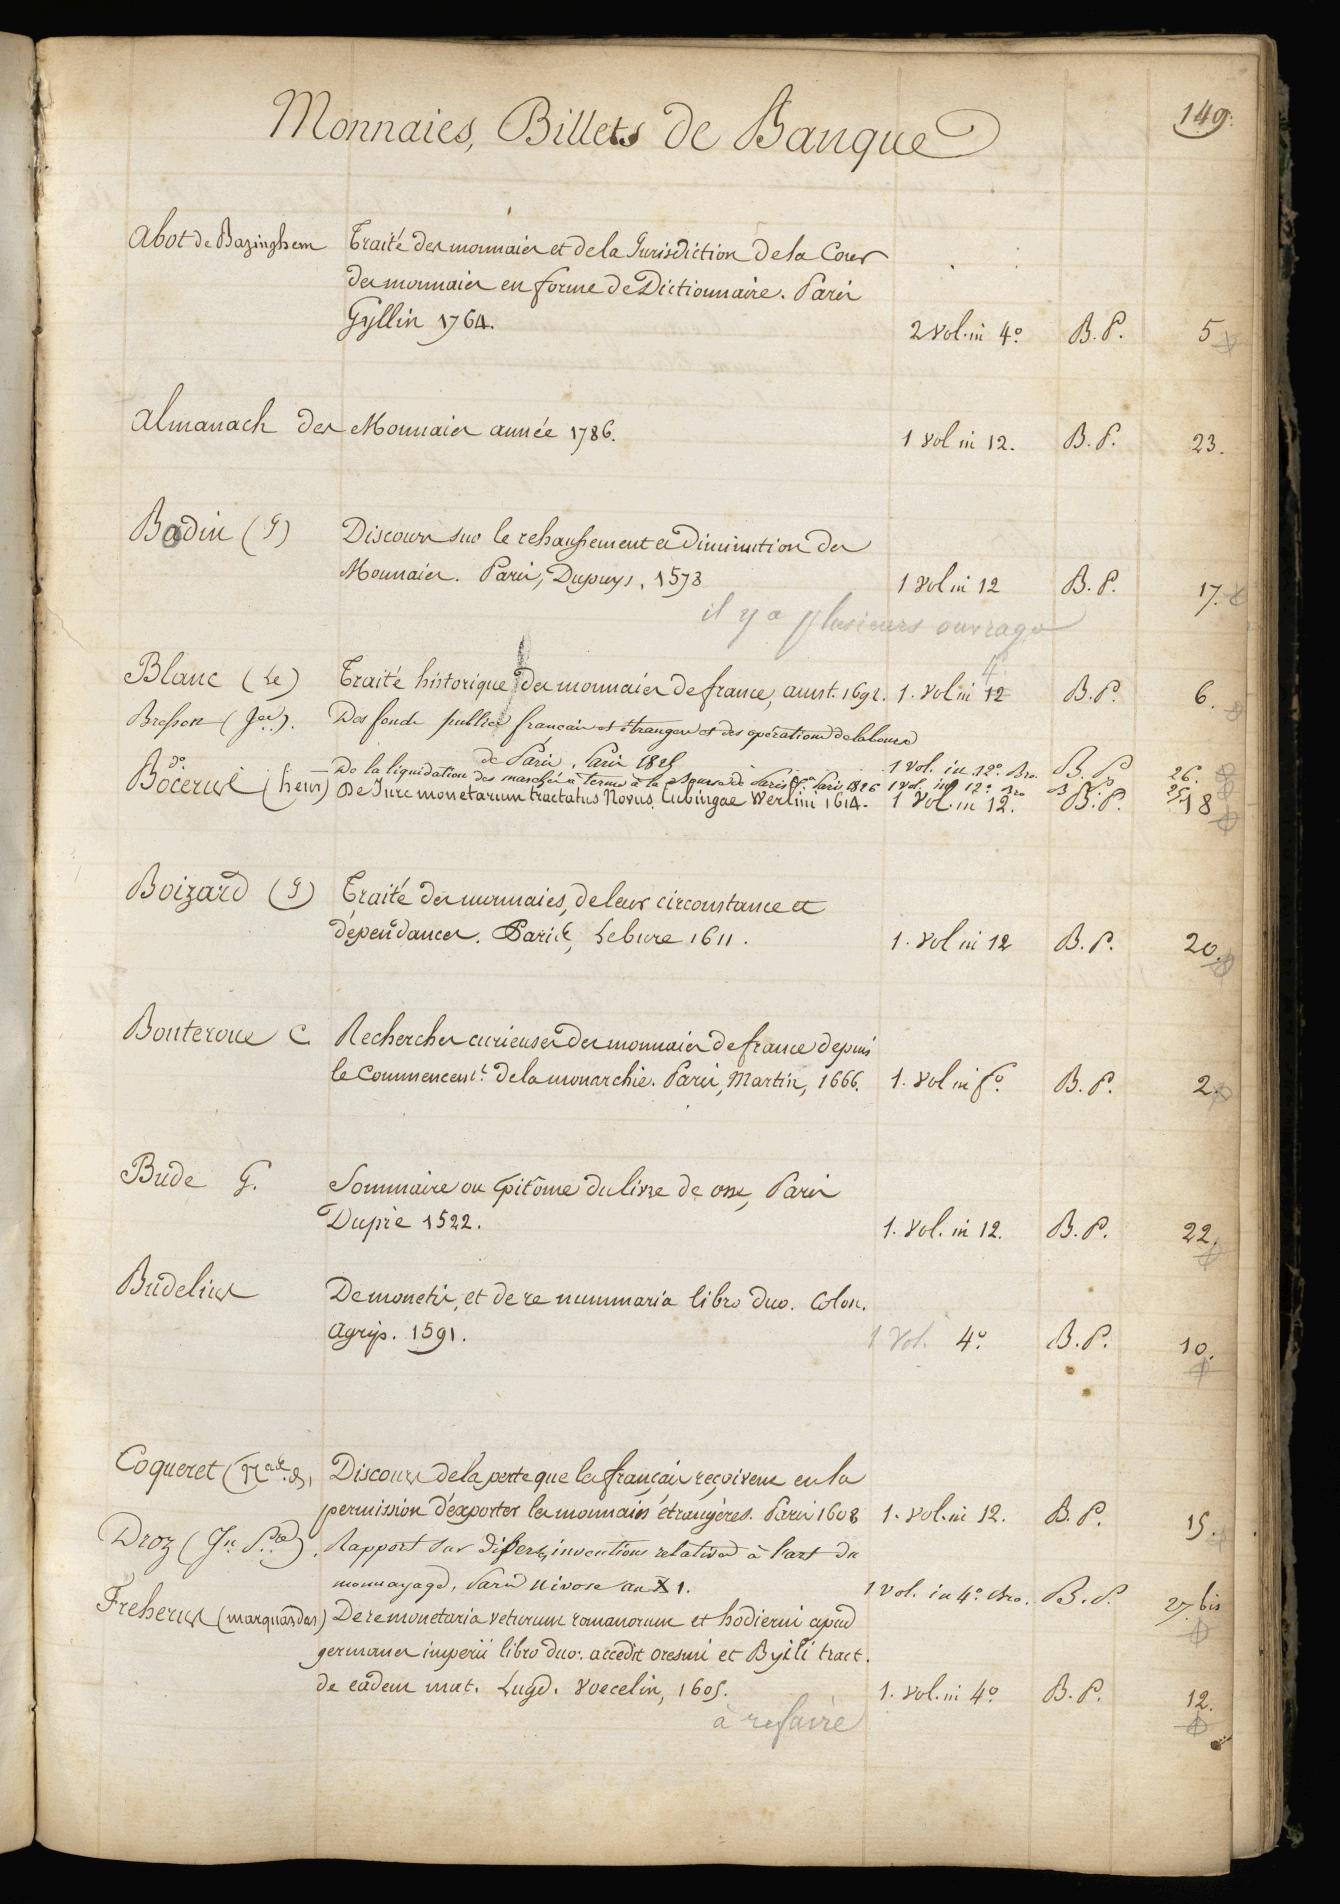 149.
Monnaies, Billets de Banque
Abot de Bazinghem Traité des monnaies et de la Jurisdiction de la Cour
des monnaies en forme de Dictionnaire. Paris
Gyllin 1764. 2 vol. in 4º. B. P. 5
Almanach des Monnaies année 1786. 1 vol in 12. B. P. 23.
Bodin (J) Discours sur le rehaussement et diminution des
Monnaies. Paris, Dupuys, 1578 1 vol in 12 B. P. 17.
il y a plusieurs ouvrages
4
Blanc (Le) Traité historique des monnaies de france, amst. 1692. 1. vol in 12 B. P. 6.
Bresson (Jes). Des fonds publics français et étrangers et des opérations de la bourse
de Paris. Paris 1825 1 vol. in 12º. Bro. B. P. 26.
dº. De la liquidation des marchés à terme à la Bourse de Paris Paris 1826 1 vol. in 12º Bro B. P.
Bocerus (henr) De Jure monetarum tractatus Novus. Tubingae Werlini 1614. 1 vol. in 12. B. P. 18
Boizard (J) Traité des monnaies, de leur circonstance et
dépendances. Paris, Lebure 1611. 1. vol in 12 B. P. 20.
Bouteroue C Recherches curieuses des monnaies de france depuis
le Commencemt. de la monarchie. Paris, Martin, 1666. 1. vol in fº. B. P. 2.
Bude G. Sommaire ou Epitôme du livre de asse, Paris
Dupré 1522. 1. vol. in 12. B. P. 22.
Budelius De monetis, et de re nummaria libro duo. Colon.
Agrip. 1591. 1 vol. 4º. B. P. 10.
Coqueret Discours de la perte que les français reçoivent en la
permission d'exporter les monnaies étrangères. Paris 1608 1. vol. in 12. B. P. 15.
Droz (Jn. Pre). Rapport sur divers inventions relatives à l'art du
monnayage, Paris nivose an X 1. 1 vol. in 4º. Bro. B. P. 27. bis
Freherus (marquardus) De re monetaria veterum romanorum et hodierni apud
germanos imperii libro duo. accedit oresmi et Byili tract.
de eâdem mat. Lugd. Voecelin, 1605. 1. vol. in 4º B. P. 12.
à refaire